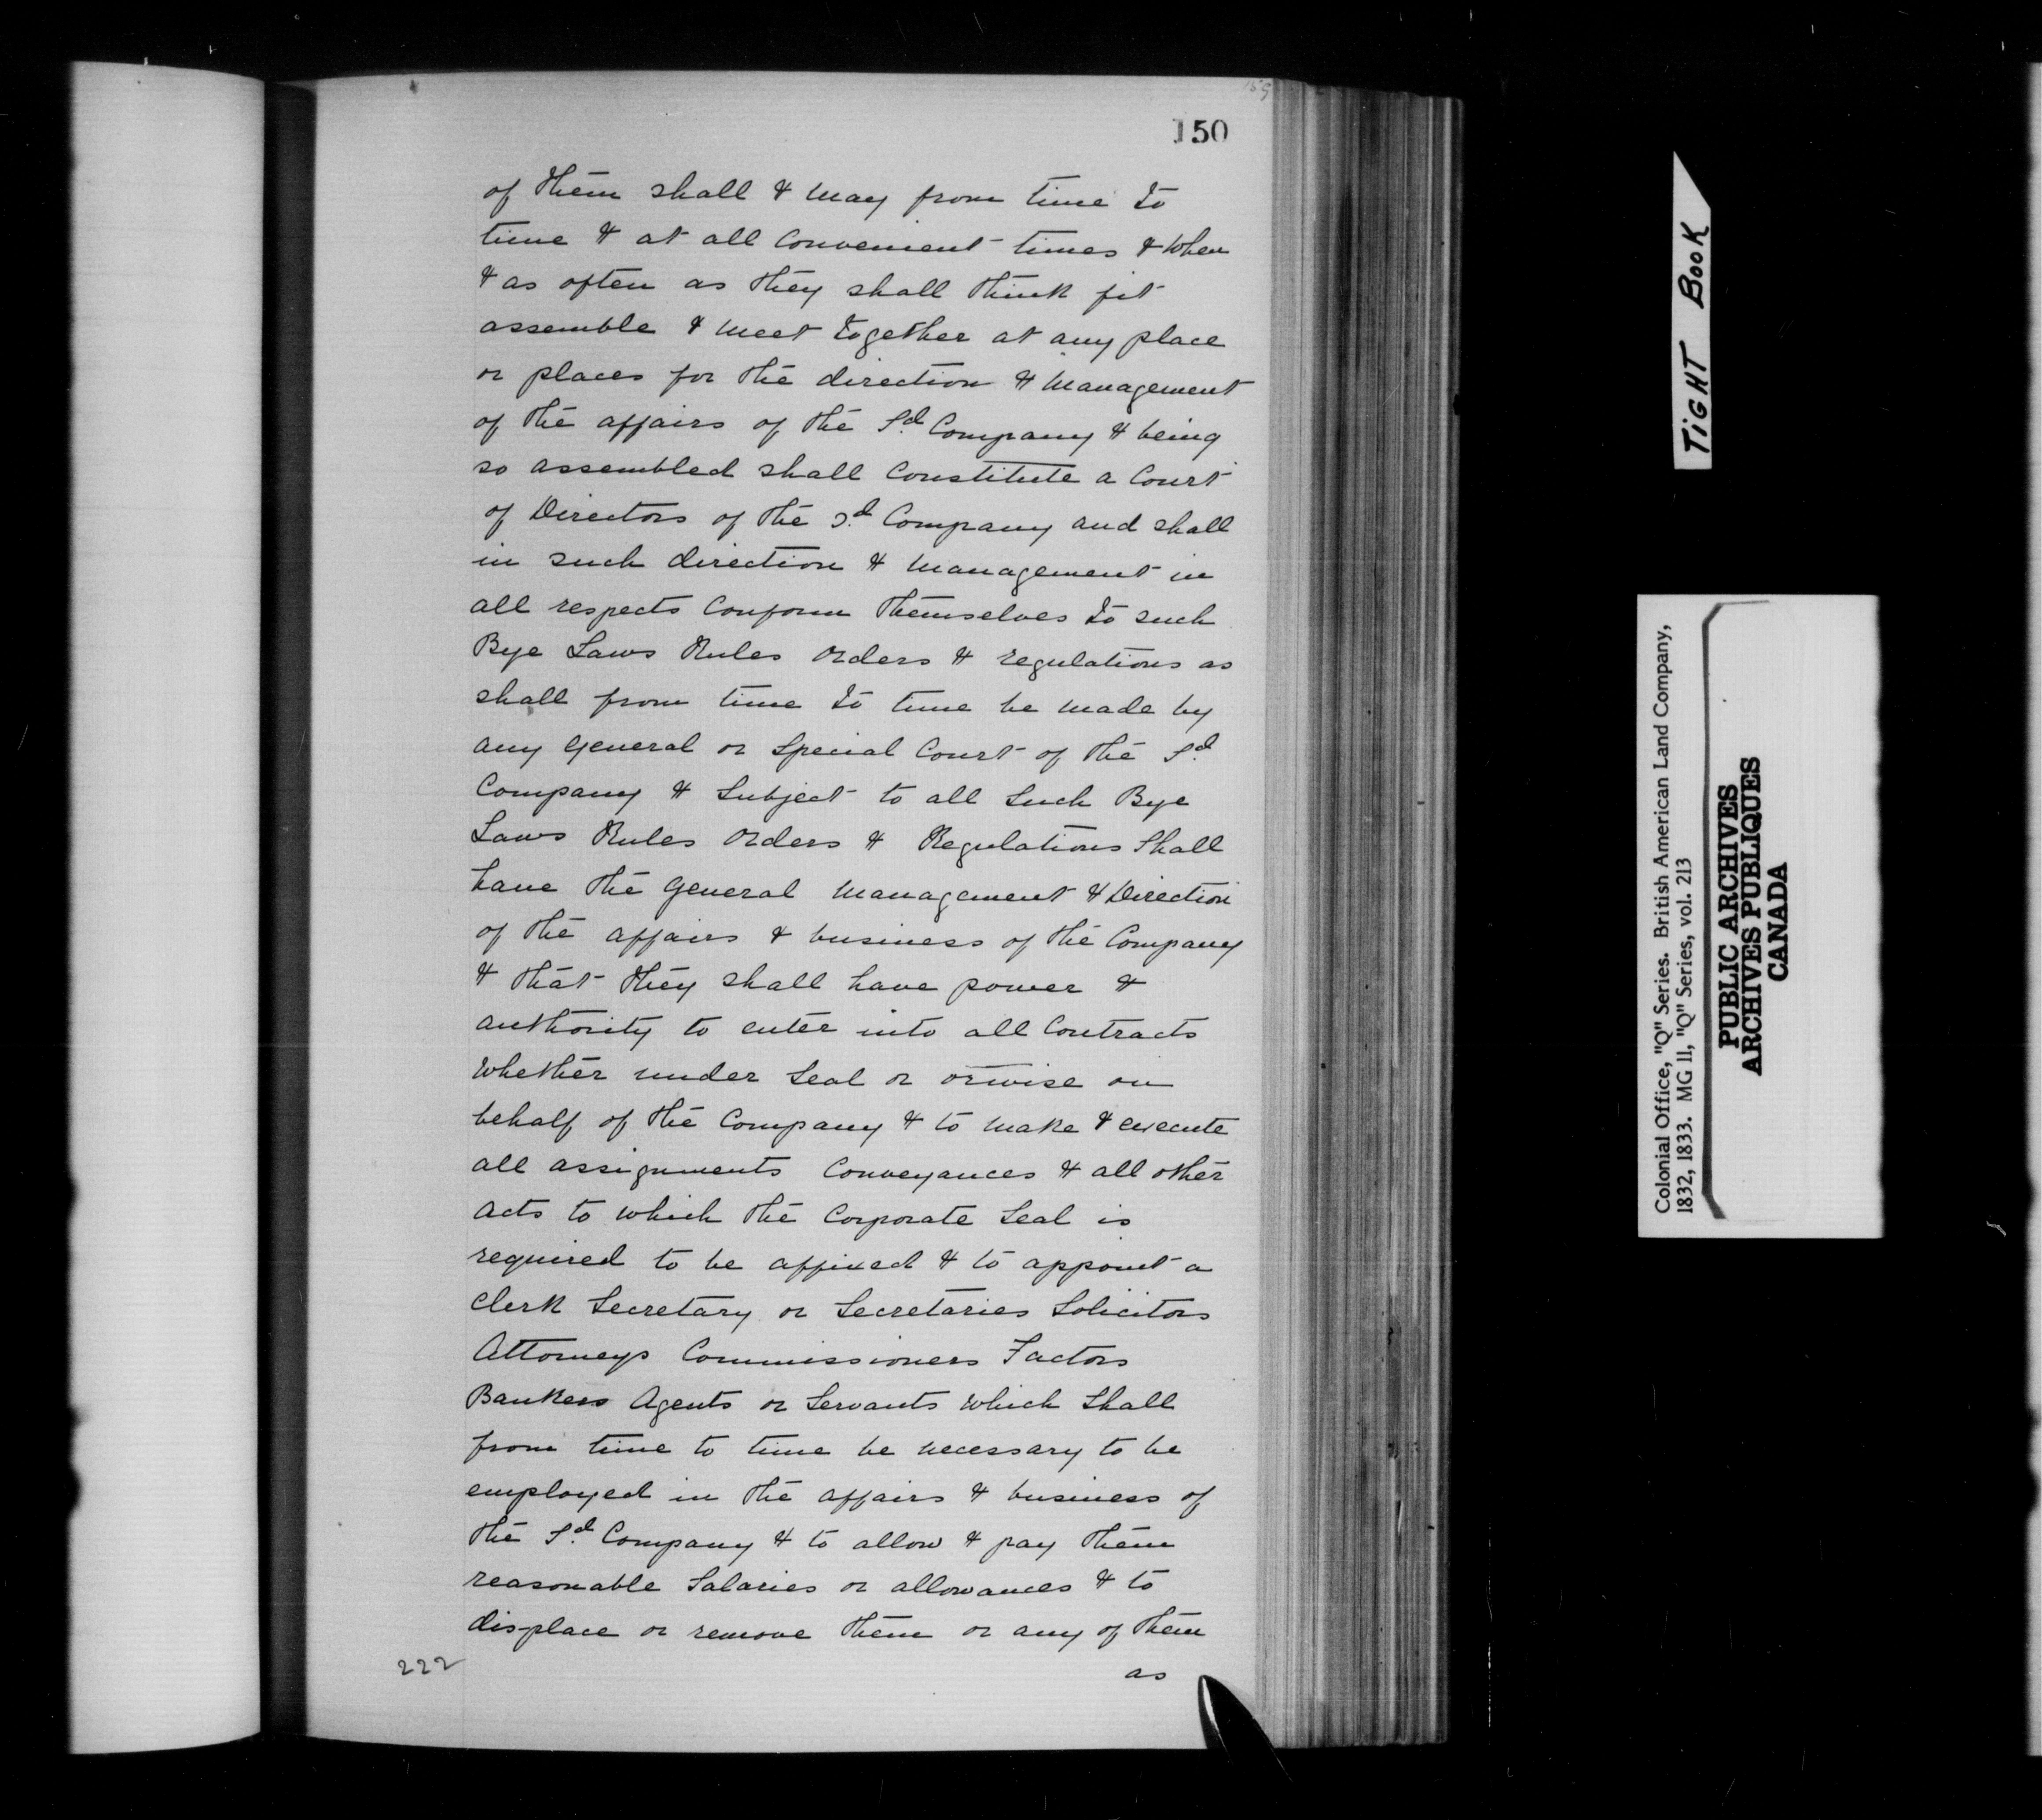 150
of them shall & may from time to
time & at all Convenient times & when
& as often as they shall think fit
assemble & meet together at any place
or places for the direction & Management
of the affairs of the Sd. Company & being
so assembled shall Constitute a Court
of Directors of the sd. Company and shall
in such direction & Management in
all respects Conform themselves to such
Bye Laws Rules Orders & regulations as
shall from time to time be made by
any General or Special Court of the Sd.
Company & Subject to all Such Bye
Laws Rules Orders & Regulations Shall
have the General Management & Direction
of the affairs & business of the Company
& that they shall have power &
authority to enter into all Contracts
whether under Seal or orwise on
behalf of the Company & to make & execute
all assignments Conveyances & all other
acts to which the Corporate Seal is
required to be affixed & to appoint a
Clerk Secretary or Secretaries Solicitors
Attorneys Commissioners Factors
Bankers Agents or Servants which Shall
from time to time be necessary to be
employed in the affairs & business of
the Sd. Company & to allow & pay them
reasonable Salaries or allowances & to
displace or remove them or any of them
as
222
TIGHT BOOK
Colonial Office, "Q" Series. British American Land Company,
1832, 1833. MG 11, "Q" Series, vol. 213
PUBLIC ARCHIVES
ARCHIVES PUBLIQUES
CANADA